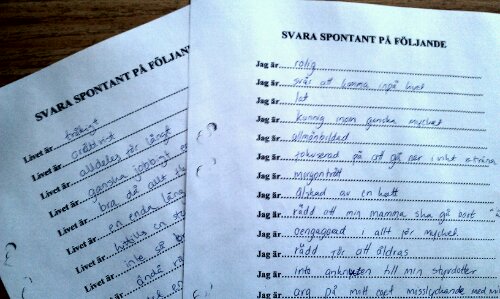 SVARA SPONTANT PÅ FÖLJAN
Livet är tråkigt
Livet är orättvist
Livet är alldeles för långt
Livet är ganska jobbigt
Livet är bra då allt
Livet är en enda lång
Livet är
Livet är inte så
Livet är ändå
SVARA SPONTANT PÅ FÖLJANDE
Jag är rolig
Jag är svår att komma inpå livet
Jag är lat
Jag är kunnig inom ganska mycket
Jag är allmänbildad
Jag är fokuserad på att gå ner i vikt
Jag är morgontrött
Jag är älskad av en katt
Jag är rädd att min mamma ska gå bort
Jag är oengagerad i allt för mycket
Jag är rädd för att åldras
Jag är inte till min styvdotter
Jag är arg på mitt eget misslyckande med